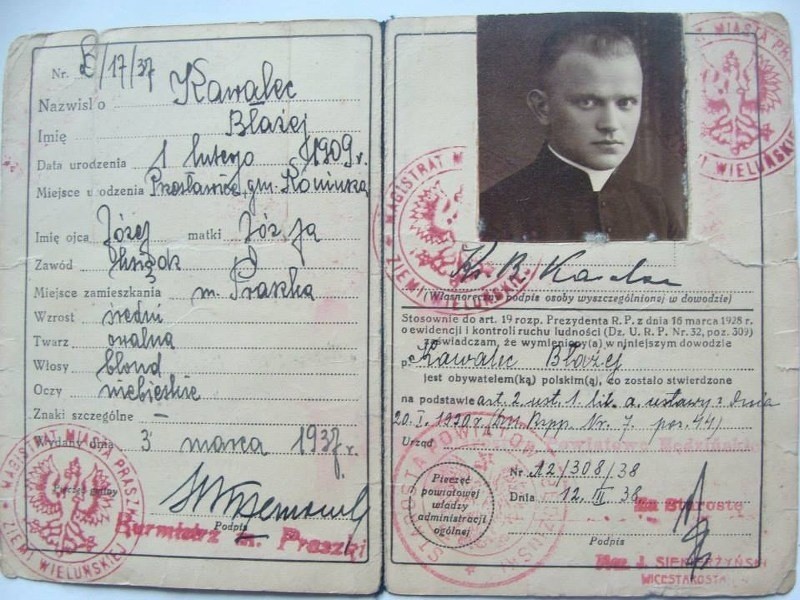 Nr. E/17/37
Nazwisko Kawalec
Imię Błażej
Data urodzenia 1 lutego 1909 r.
Miejsce urodzenia gm.
Imię ojca Józef matki Józefa
Zawód
Miejsce zamieszkania m. Praszka
Wzrost średni
Twarz owalna
Włosy blond
Oczy niebieskie
Znaki szczególne —
Wydany dnia 3 marca 1937 r.
MAGISTRAT MIASTA PRASZKI
ZIEMI WIELUŃSKIEJ
Pieczęć gminy
Podpis
Burmistrz m. Praszki
MIASTA
WIELUŃSKI
MAGISTRAT M
ZIEMI WIELUŃSKIEJ
Ks. B. Kawalec
(Własnoręczny podpis osoby wyszczególnionej w dowodzie)
Stosownie do art. 19 rozp. Prezydenta R. P. z dnia 16 marca 1928 r.
o ewidencji i kontroli ruchu ludności (Dz. U. R. P. Nr. 32, poz. 309)
zaświadczam, że wymieniony(a) w niniejszym dowodzie
p. Kawalec Błażej
jest obywatelem(ką) polskim(ą), co zostało stwierdzone
na podstawie art. 2 ust. 1 lit. a ustawy z dnia
20. I. 1920 r. Nr. 7. poz. 44)
Urząd Powiatowe
Nr 12/308/38
Dnia 12. III 38
Pieczęć
powiatowej
władzy
administracji
ogólnej
Za Starostę
Podpis
WICESTAROSTA